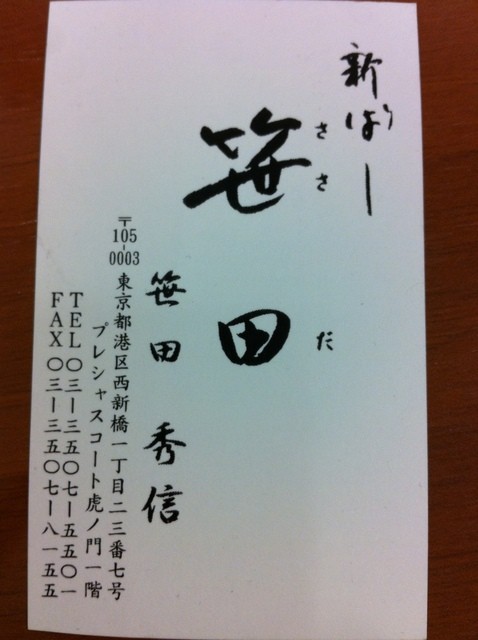 新ばし
笹田
ささだ
笹田 秀信
〒105-0003
東京都港区西新橋一丁目二三番七号
プレシャスコート虎ノ門一階
TEL〇三ー三五〇七ー五五〇一
FAX〇三ー三五〇七ー八一五五